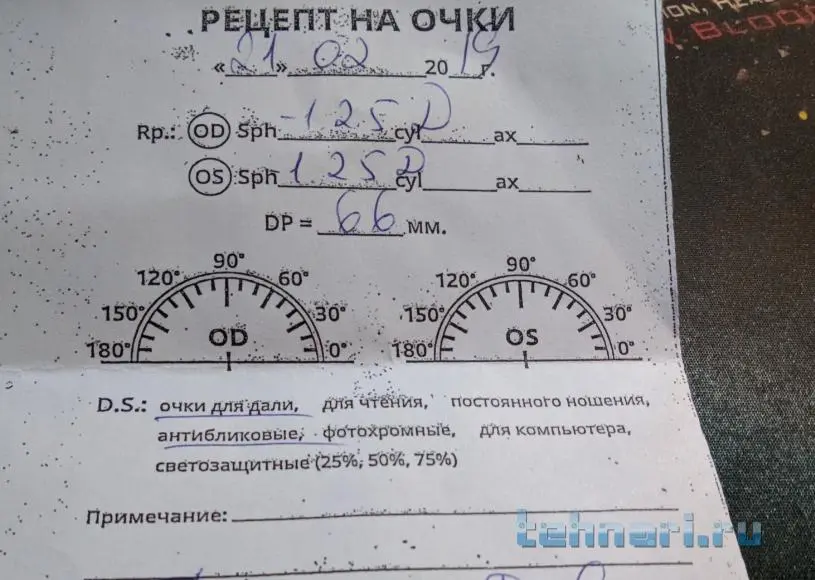 РЕЦЕПТ НА ОЧКИ
«21» 02 2019 г.
Rp.: OD Sph -1 25 D cyl ax
OS Sph 1 25 D cyl ax
DP = 66 мм.
180° 150° 120° 90° 60° 30° 0°
OD
180° 150° 120° 90° 60° 30° 0°
OS
D.S.: очки для дали, для чтения, постоянного ношения,
антибликовые, фотохромные, для компьютера,
светозащитные (25%, 50%, 75%)
Примечание:
tehnari.ru